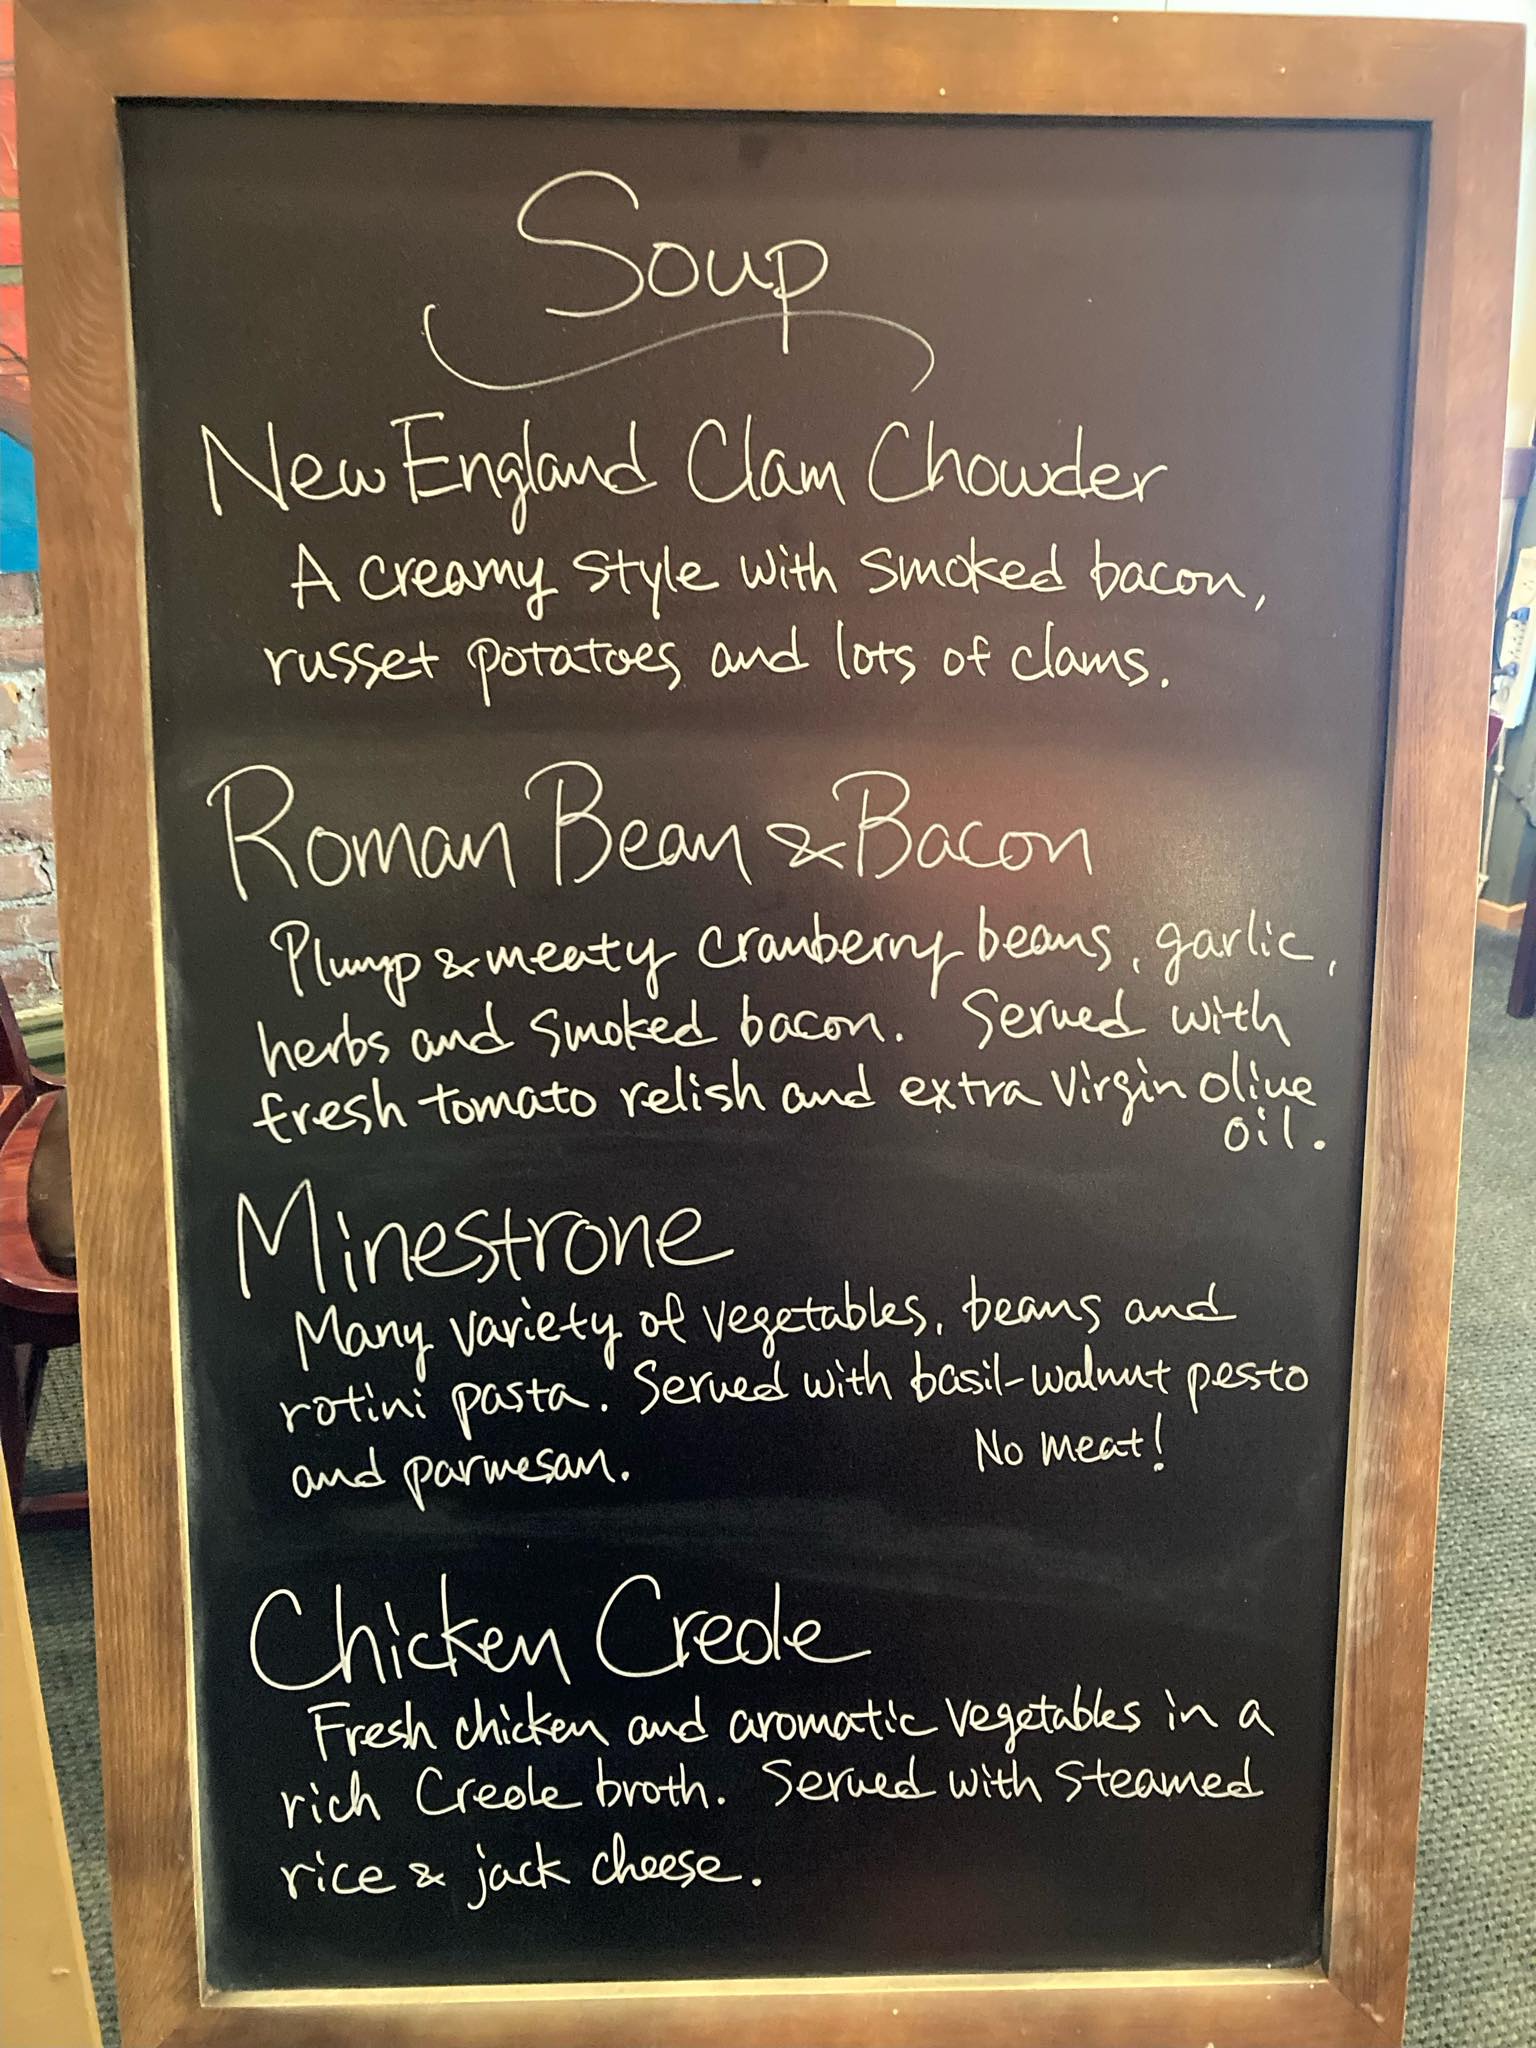 Soup
New England Clam Chowder
A creamy style with smoked bacon,
russet potatoes and lots of clams.
Roman Bean & Bacon
Plump & meaty cranberry beans, garlic,
herbs and smoked bacon. Served with
fresh tomato relish and extra virgin olive
oil.
Minestrone
Many variety of vegetables, beans and
rotini pasta. Served with basil-walnut pesto
and parmesan. No meat!
Chicken Creole
Fresh chicken and aromatic vegetables in a
rich Creole broth. Served with steamed
rice & jack cheese.